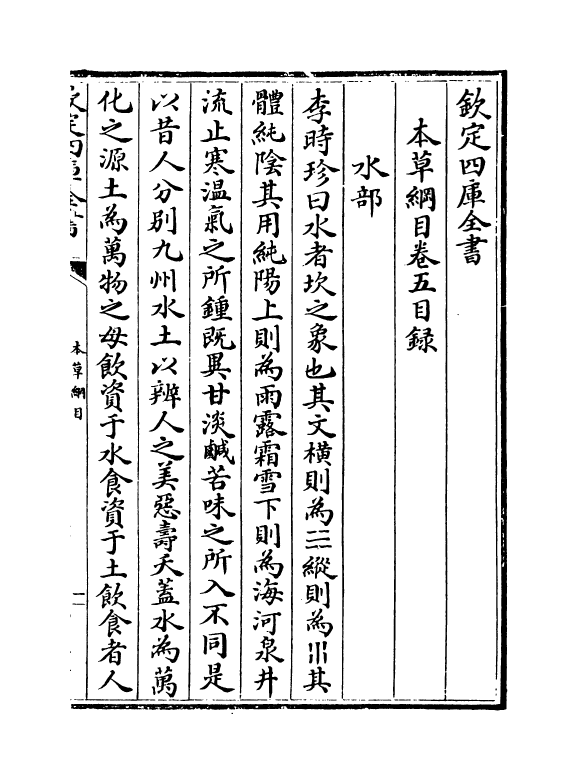 欽定四庫全書
本草綱目卷五目録
水部
李時珍曰水者坎之象也其文横則為☵縱則為〣其
體純陰其用純陽上則為雨露霜雪下則為海河泉井
流止寒温氣之所鍾既異甘淡鹹苦味之所入不同是
以昔人分别九州水土以辨人之美惡壽夭蓋水為萬
化之源土為萬物之母飲資于水食資于土飲食者人
本草綱目
二